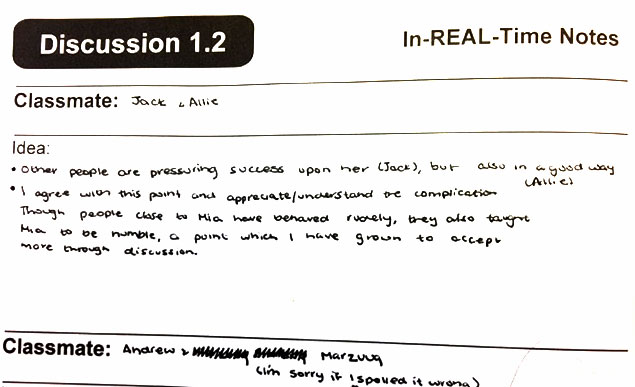 Discussion 1.2
In-REAL-Time Notes
Classmate: Jack & Allie
Idea:
• Other people are pressuring success upon her (Jack), but also in a good way
(Allie)
• I agree with this point and appreciate/understand the complication
Though people close to Mia have behaved rudely, they also taught
Mia to be humble, a point which I have grown to accept
more through discussion.
Classmate: Andrew & Marzuug
(I'm sorry if I spelled it wrong)